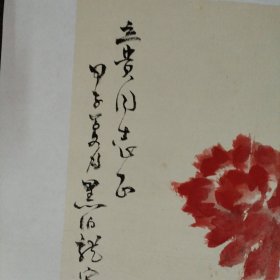 立贵同志正
甲子夏月黑伯龙